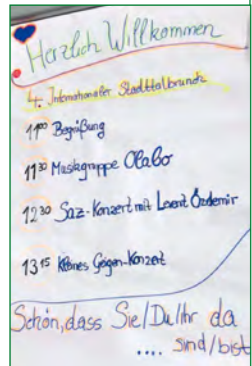 Herzlich Willkommen
4. Internationaler Stadtteilbrunch
11⁰⁰ Begrüßung
11³⁰ Musikgruppe Olabo
12³⁰ Saz-Konzert mit Levent Özdemir
13¹⁵ Kleines Geigen-Konzert
Schön, dass Sie/Du/Ihr da
.... sind/bist